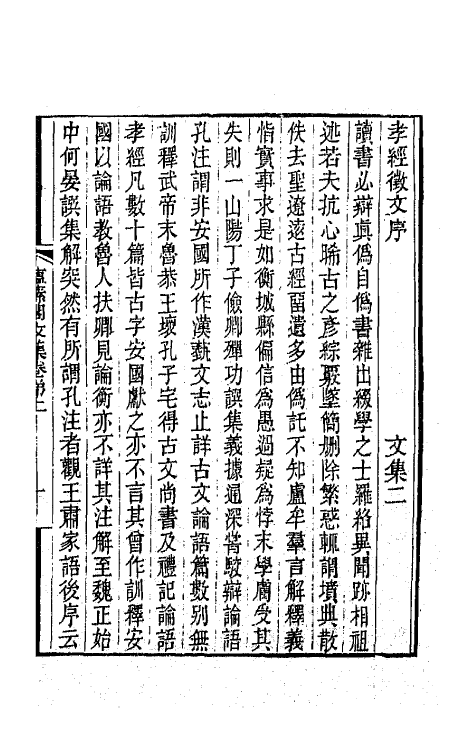 孝經徵文序　文集二
讀書必辯眞僞自僞書雜出綴學之士羅絡異聞跡相祖
述若夫抗心晞古之彥綜覈墜簡刪除繁惑輒謂墳典散
佚去聖遼遠古經畱遺多由僞託不知盧牟羣言解釋義
恉實事求是如衡城縣偏信爲愚過疑爲悖末學膚受其
失則一山陽丁子儉卿殫功譔集義據通深嘗駮辯論語
孔注謂非安國所作漢蓺文志止詳古文論語篇數别無
訓釋武帝末魯恭王壞孔子宅得古文尚書及禮記論語
孝經凡數十篇皆古字安國獻之亦不言其曾作訓釋安
國以論語教魯人扶卿見論衡亦不詳其注解至魏正始
中何晏譔集解突然有所謂孔注者觀王肅家語後序云
文集卷第二
一